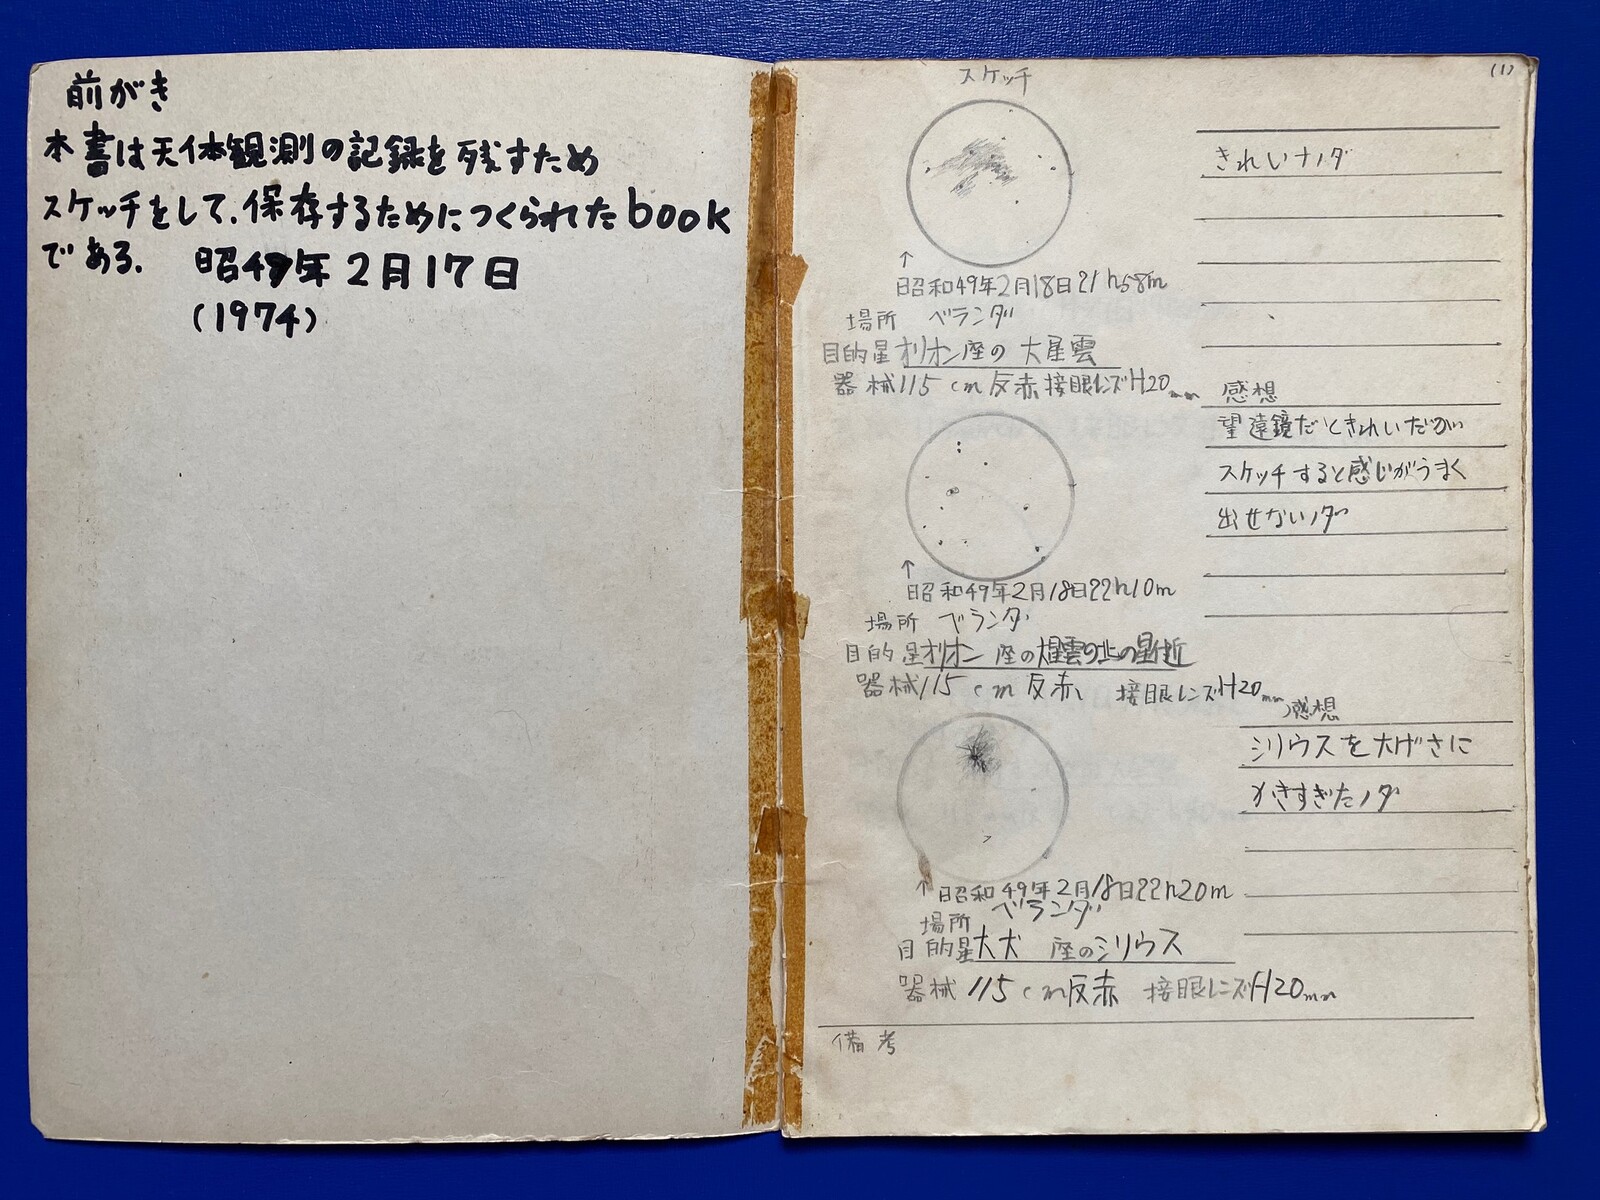 前がき
本書は天体観測の記録を残すため
スケッチをして、保存するためにつくられたbook
である。 昭49年2月17日
(1974)
(1)
スケッチ
きれいナノダ
↑
昭和49年2月18日21h58m
場所 ベランダ
目的星オリオン座の 大星雲
器械115cm反赤 接眼レンズH20mm
感想
望遠鏡だときれいだがい
スケッチすると感じがうまく
出せないノダ
↑
昭和49年2月18日22h10m
場所 ベランダ
目的星オリオン 座の大星雲の北の星附近
器械115cm反赤 接眼レンズH20mm
感想
シリウスを大げさに
かきすぎたノダ
↑昭和49年2月18日22h20m
場所 ベランダ
目的星大犬 座のシリウス
器械 115cm反赤 接眼レンズH20mm
備考